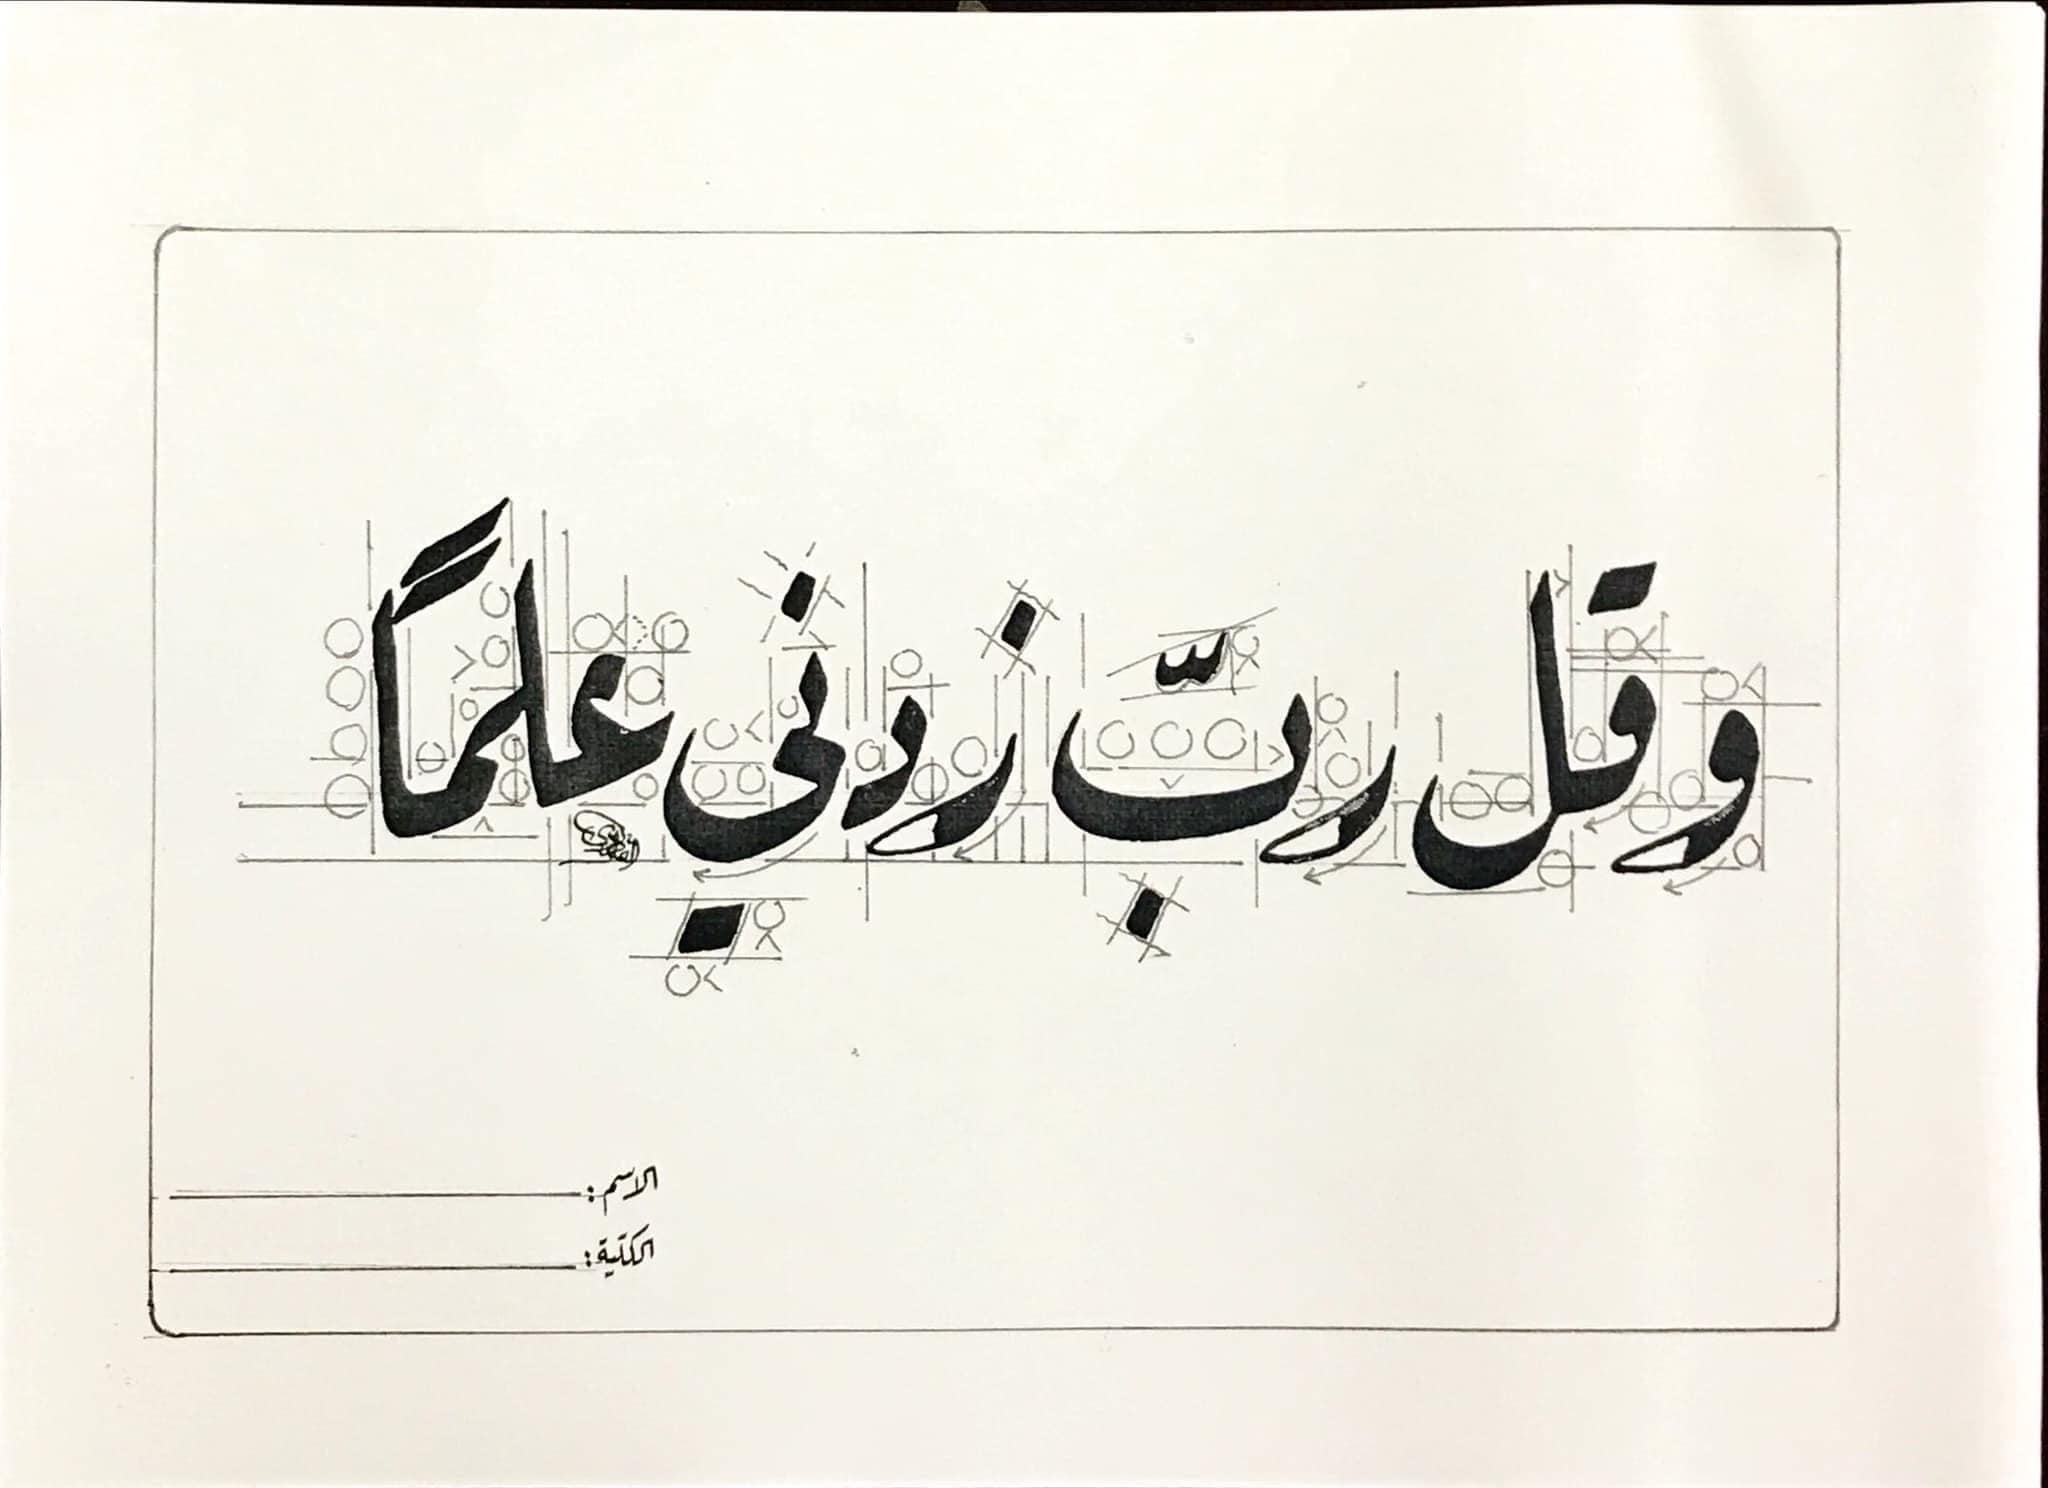 وقل ربّ زدني علماً
الاسم:
الكلية: